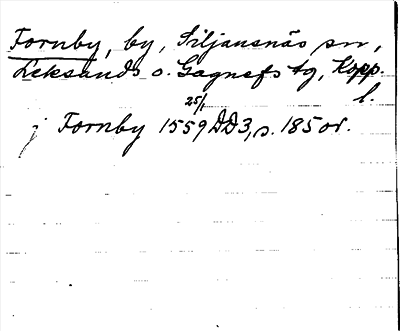 Fornby, by, Siljansnäs sn,
Leksands o. Gagnefs tg, Kopp.
l.
j Fornby 1559 25/1 DD3, s. 185 or.